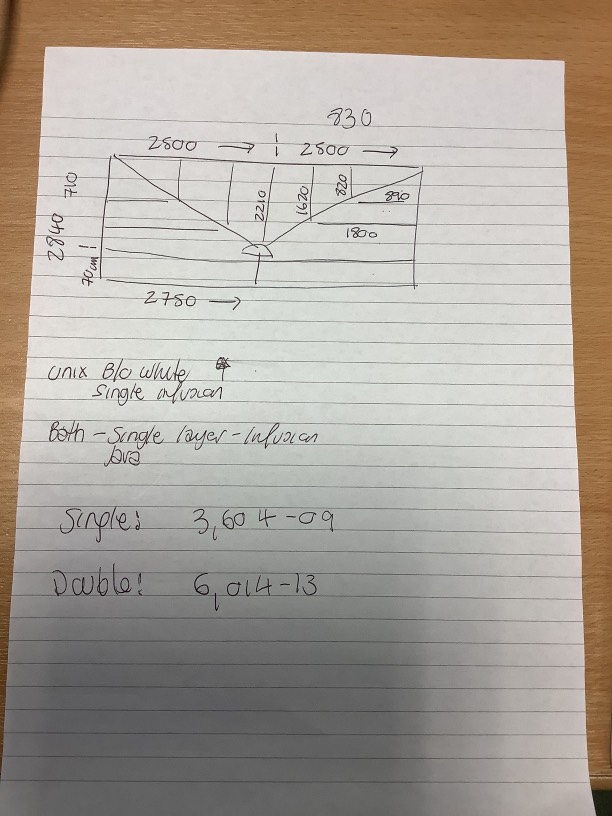 830
2800 → 2800 →
710
2210
1620
820
890
2840
1800
70cm
2750 →
Unix B/o white
Single infusion
Both - Single layer - Infusion
Java
Single: 3,604-09
Double: 6,014-13